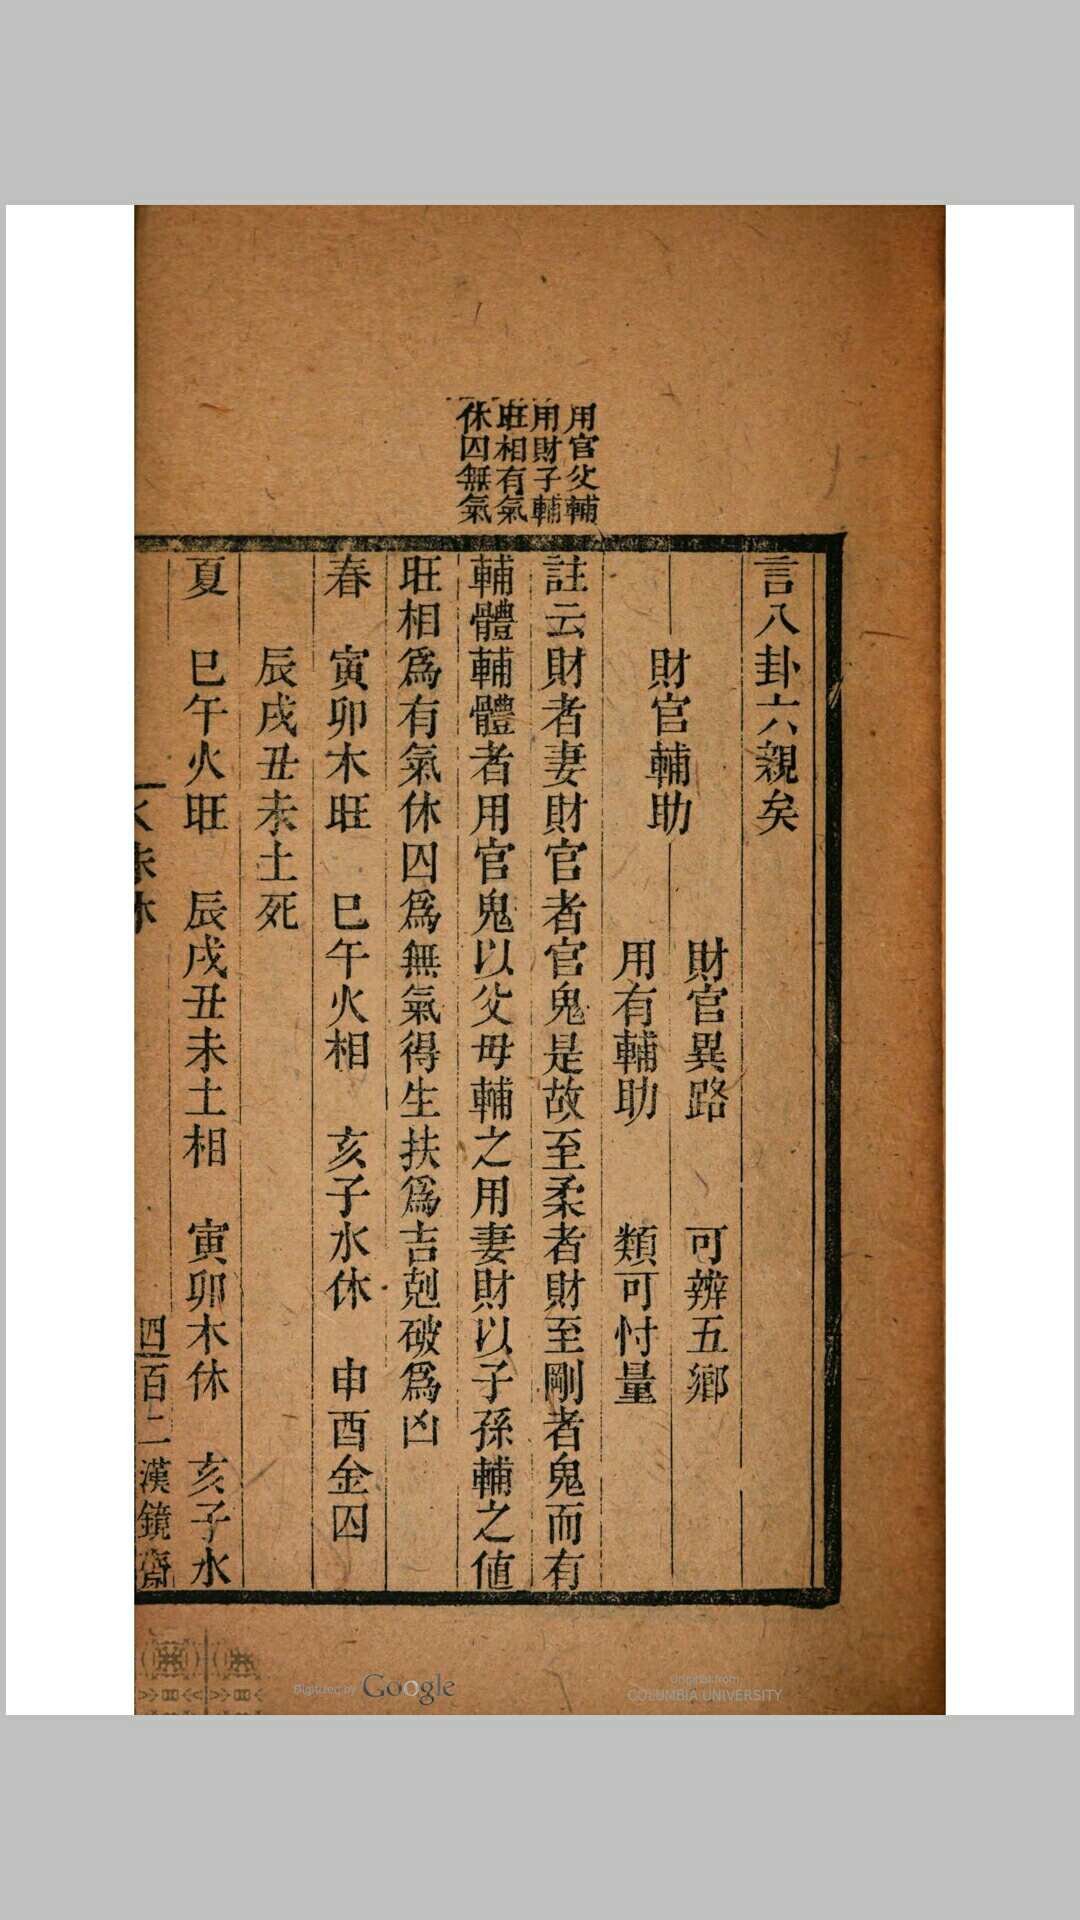 用官父輔
用財子輔
旺相有氣
休囚無氣
言八卦六親矣
財官輔助
財官異路 可辨五鄉
用有輔助 類可忖量
註云財者妻財官者官鬼是故至柔者財至剛者鬼而有
輔體輔體者用官鬼以父母輔之用妻財以子孫輔之値
旺相爲有氣休囚爲無氣得生扶爲吉剋破爲凶
春 寅卯木旺 巳午火相 亥子水休 申酉金囚
辰戌丑未土死
夏 巳午火旺 辰戌丑未土相 寅卯木休 亥子水
四百二漢鏡齋
Digitized by Google
Original from
COLUMBIA UNIVERSITY